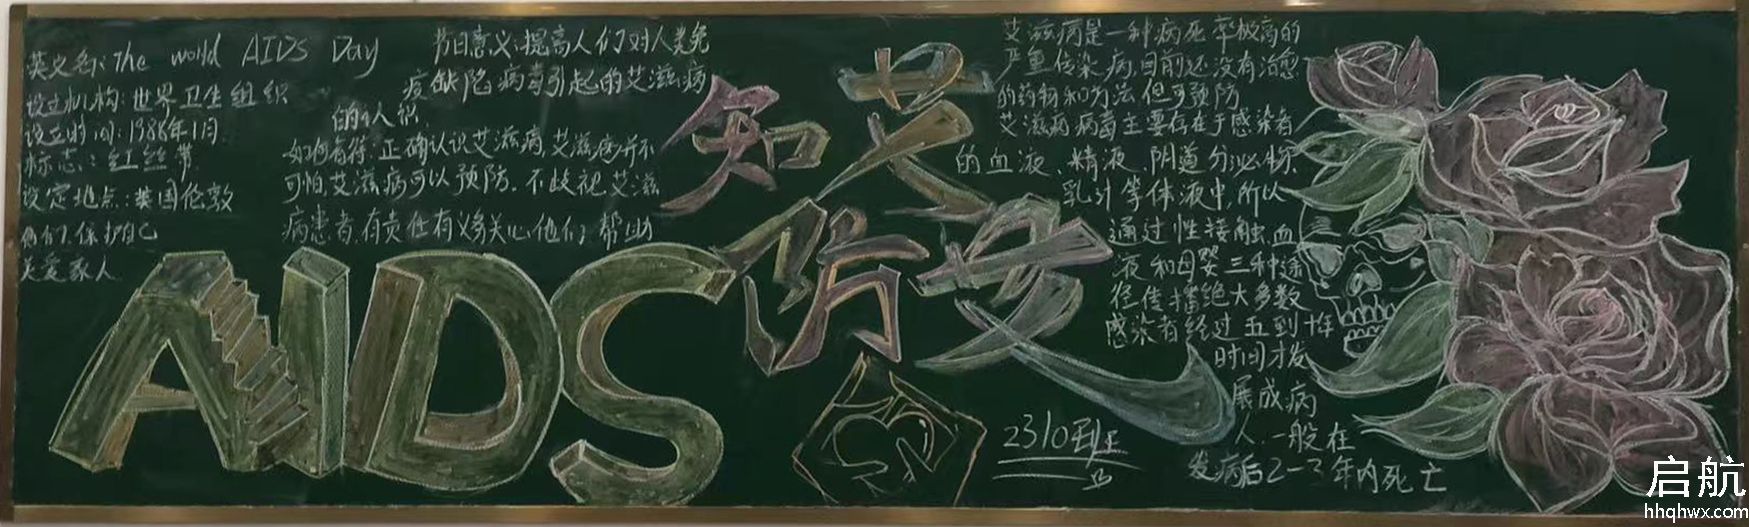 英文名:The world AIDS Day
设立机构:世界卫生组织
设立时间:1988年1月
标志:红丝带
设定地点:英国伦敦
他们,保护自己
关爱家人
节日意义:提高人们对人类免
疫缺陷病毒引起的艾滋病
的认识
如何看待:正确认识艾滋病,艾滋病并不
可怕,艾滋病可以预防.不歧视艾滋
病患者,有责任有义务关心他们,帮助
AIDS
知艾
防艾
艾滋病是一种病死率极高的
严重传染病,目前还没有治愈
的药物和方法但可预防
艾滋病病毒主要存在于感染者
的血液、精液、阴道分泌物、
乳汁等体液中,所以
通过性接触,血
液和母婴三种途
径传播绝大多数
感染者经过五到十年
时间才发
展成病
人.一般在
发病后2-3年内死亡
2310班
启航
hhqhwx.com